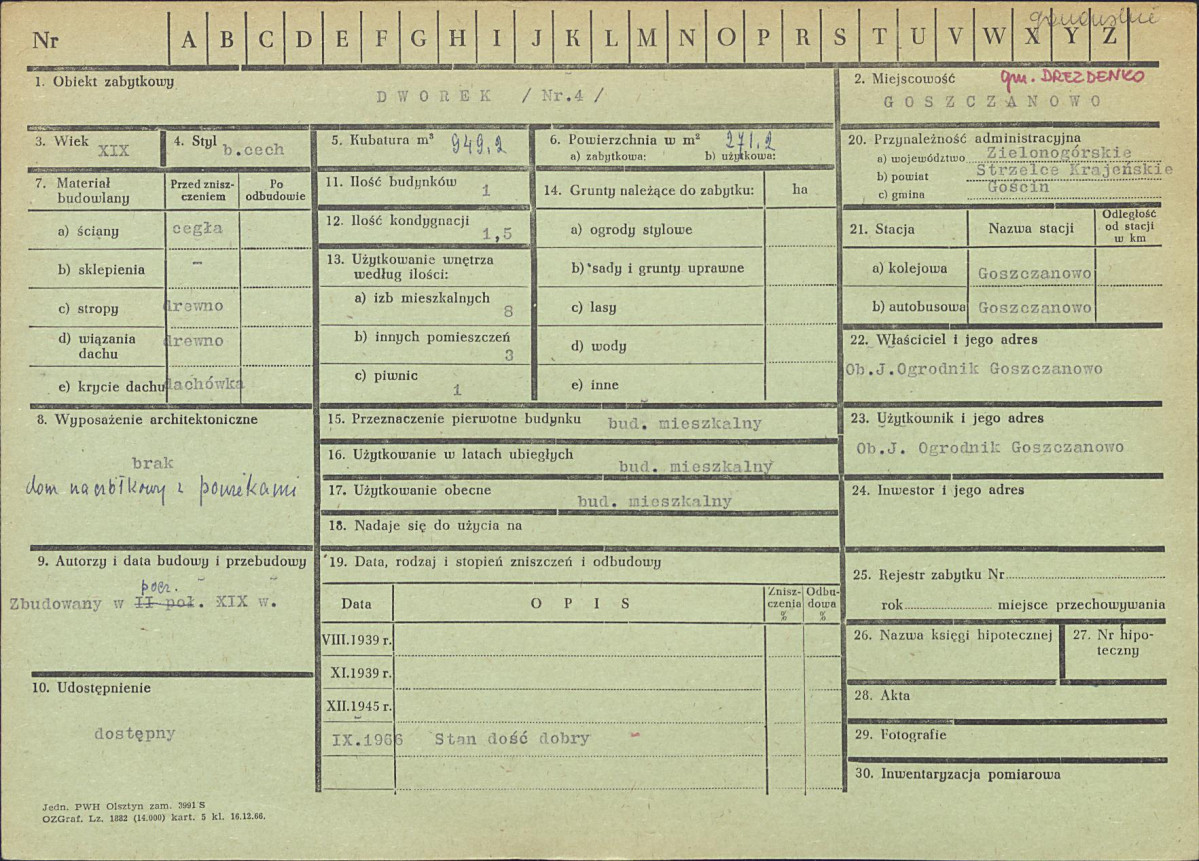 Nr A B C D E F G H I J K L M N O P R S T U V W X Y Z
1. Obiekt zabytkowy
DWOREK /Nr.4/
2. Miejscowość gm. DREZDENKO
GOSZCZANOWO
3. Wiek
XIX
4. Styl
b.cech
5. Kubatura m³ 949,2
6. Powierzchnia w m² 271,2
a) zabytkowa: b) użytkowa:
7. Materiał budowlany
Przed zniszczeniem
Po odbudowie
a) ściany cegła
b) sklepienia –
c) stropy drewno
d) wiązania dachu drewno
e) krycie dachu dachówka
8. Wyposażenie architektoniczne
brak
9. Autorzy i data budowy i przebudowy
pocz.
Zbudowany w II poł. XIX w.
10. Udostępnienie
dostępny
11. Ilość budynków 1
12. Ilość kondygnacji 1,5
13. Użytkowanie wnętrza według ilości:
a) izb mieszkalnych 8
b) innych pomieszczeń 3
c) piwnic 1
14. Grunty należące do zabytku: ha
a) ogrody stylowe
b) sady i grunty uprawne
c) lasy
d) wody
e) inne
15. Przeznaczenie pierwotne budynku bud. mieszkalny
16. Użytkowanie w latach ubiegłych bud. mieszkalny
17. Użytkowanie obecne bud. mieszkalny
18. Nadaje się do użycia na
19. Data, rodzaj i stopień zniszczeń i odbudowy
Data OPIS Zniszczenia % Odbudowa %
VIII.1939 r.
XI.1939 r.
XII.1945 r.
IX.1966 Stan dość dobry
20. Przynależność administracyjna
a) województwo Zielonogórskie
b) powiat Strzelce Krajeńskie
c) gmina Gościn
21. Stacja Nazwa stacji Odległość od stacji w km
a) kolejowa Goszczanowo
b) autobusowa Goszczanowo
22. Właściciel i jego adres
Ob.J.Ogrodnik Goszczanowo
23. Użytkownik i jego adres
Ob.J. Ogrodnik Goszczanowo
24. Inwestor i jego adres
25. Rejestr zabytku Nr
rok miejsce przechowywania
26. Nazwa księgi hipotecznej
27. Nr hipoteczny
28. Akta
29. Fotografie
30. Inwentaryzacja pomiarowa
Jedn. PWH Olsztyn zam. 3991 S
OZGraf. Lz. 1882 (14.000) kart. 5 kl. 16.12.66.